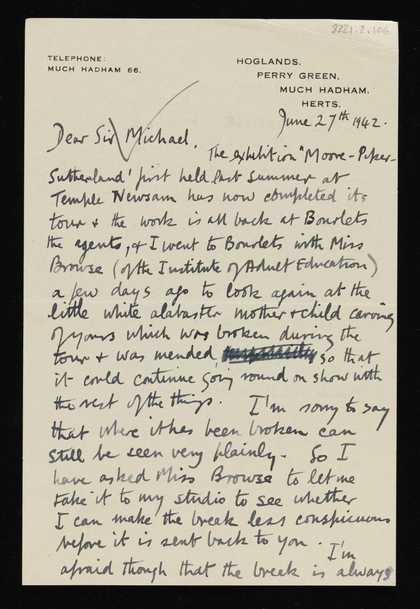 8221.2.106
TELEPHONE:
MUCH HADHAM 66.
HOGLANDS,
PERRY GREEN,
MUCH HADHAM,
HERTS.
June 27th 1942.
Dear Sir Michael,
The exhibition "Moore-Piper-
Sutherland' first held last summer at
Temple Newsam has now completed its
tour & the work is all back at Bourlets
the agents, & I went to Bourlets with Miss
Browse (of the Institute of Adult Education)
a few days ago to look again at the
little white alabaster mother & child carving
of yours which was broken during the
tour & was mended, so that
it could continue going round on show with
the rest of the things. I'm sorry to say
that where it has been broken can
still be seen very plainly. So I
have asked Miss Browse to let me
take it to my studio to see whether
I can make the break less conspicuous
before it is sent back to you. I'm
afraid though that the break is always